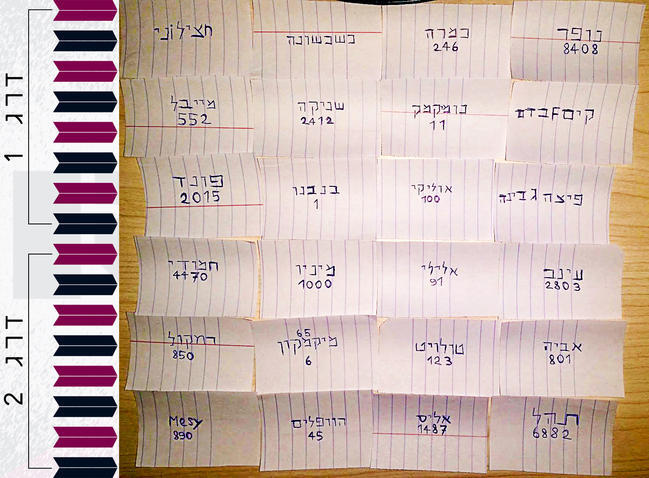 דרג 1
דרג 2
נופר
8408
כמרה
246
כשכשונה
חצילוני
קיסFברם
נומקמק
11
שניקה
2412
מייבל
552
פיצה גבינה
אוליקי
100
בנבנו
1
פונד
2015
עינב
2803
אלילי
91
מיניו
1000
חמודי
4470
אביה
801
טולויט
123
מיקמקון
65
6
רמקול
850
תהל
6882
אליס
1487
הוופלים
45
Mesy
890